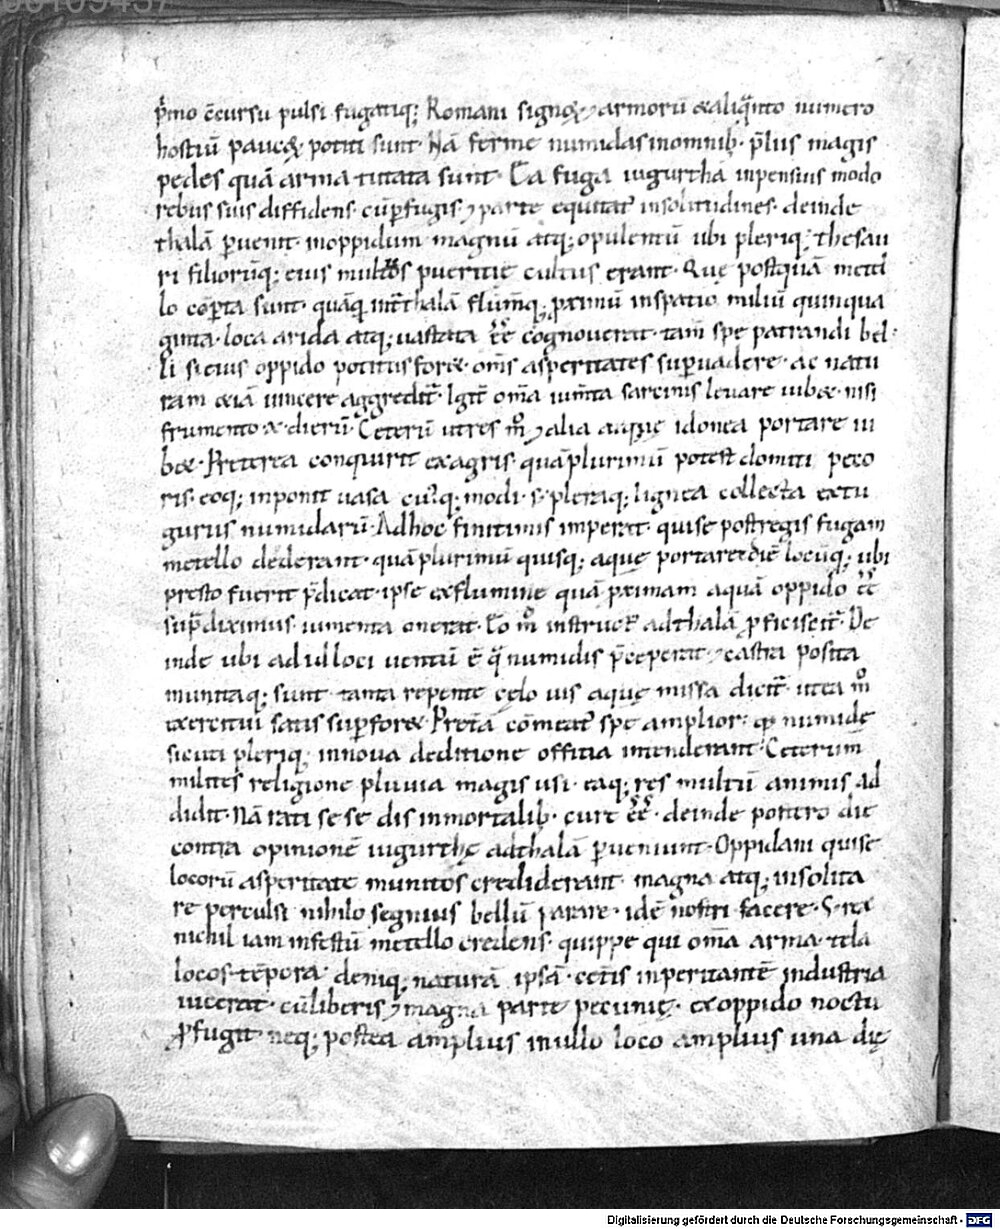 p̄mo c̄cursu pulsi fugatiq; Romani signoꝝ ⁊ armorū & aliq̄nto numero
hostiū paucoꝝ potiti sunt. Nā ferme numidas inomnib; p̄lus magis
pedes quā arma tutata sunt. Ea fuga iugurtha inpensius modo
rebus suis diffidens. cūp̄fugis ⁊ parte equitat᷒ insolitudines. deinde
thalā p̱uenit. inoppidum magnū atq; opulentū ubi pleriq; thesau
ri filiorūq; eius multus pueritię cultus erant. Quę postquā metel
lo cōp̱ta sunt. quāq̄ int̄ thalā flum̄q; p̄ximū inspatio miliū quinqua
ginta. loca arida atq; uastata ēē cognouerat. tam̄ spe patrandi bel
li si eius oppido potitus for&. om̄s asperitates sup̱uadere. ac natu
ram &iā uincere aggredit̄. Igit̄ om̄a ium̄ta sarcinis leuare iub&. nisi
frumento x. dierū. Ceterū utres m̊ ⁊ alia aquę idonea portare iu
b&. Preterea conquirit exagris quāplurimū potest domiti peco
ris. eoq; inponit uasa cui᷒q; modi. s; pleraq; lignea collecta extu
guriis numidarū. Adhoc finitimis imperat. quise postregis fugam
metello dederant. quāplurimū quisq; aquę portar& diē locūq; ubi
presto fuerit p̄dicat. ipse exflumine quā p̄ximam aquā oppido ēē
sup̄diximus. iumenta onerat. Eo m̊ instruct᷒ adthalā ꝓficiscit̄. De
inde ubi adid loci uentū ē q̄ numidis p̄ceperat. ⁊ castra posita
munitaq; sunt. tanta repente cęlo uis aquę missa dicit̄. utea m̊
exercitui satis sup̱for&. Pret̄ā cōmeat᷒ spe amplior. quia numidę
sicuti pleriq; innoua deditione offitia intenderant. Ceterum
milites religione pluuia magis usi. eaq; res multū animis ad
didit. Nā rati sese dis inmortalib; curę ēē. deinde postero die
contra opinionē iugurthę adthalā p̱ueniunt. Oppidani quise
locorū asperitate munitos crediderant. magna atq; insolita
re perculsi nihilo segnius bellū parare. idē nostri facere. S; rex
nichil iam infectū metello credens. quippe qui om̄a arma. tela
locos. tēpora. deniq; naturā ipsā cet̄is inperitantē industria
uicerat. cūliberis ⁊ magna parte pecunię. exoppido noctu
ꝓfugit. neq; postea amplius inullo loco amplius una dię
Digitalisierung gefördert durch die Deutsche Forschungsgemeinschaft - DFG